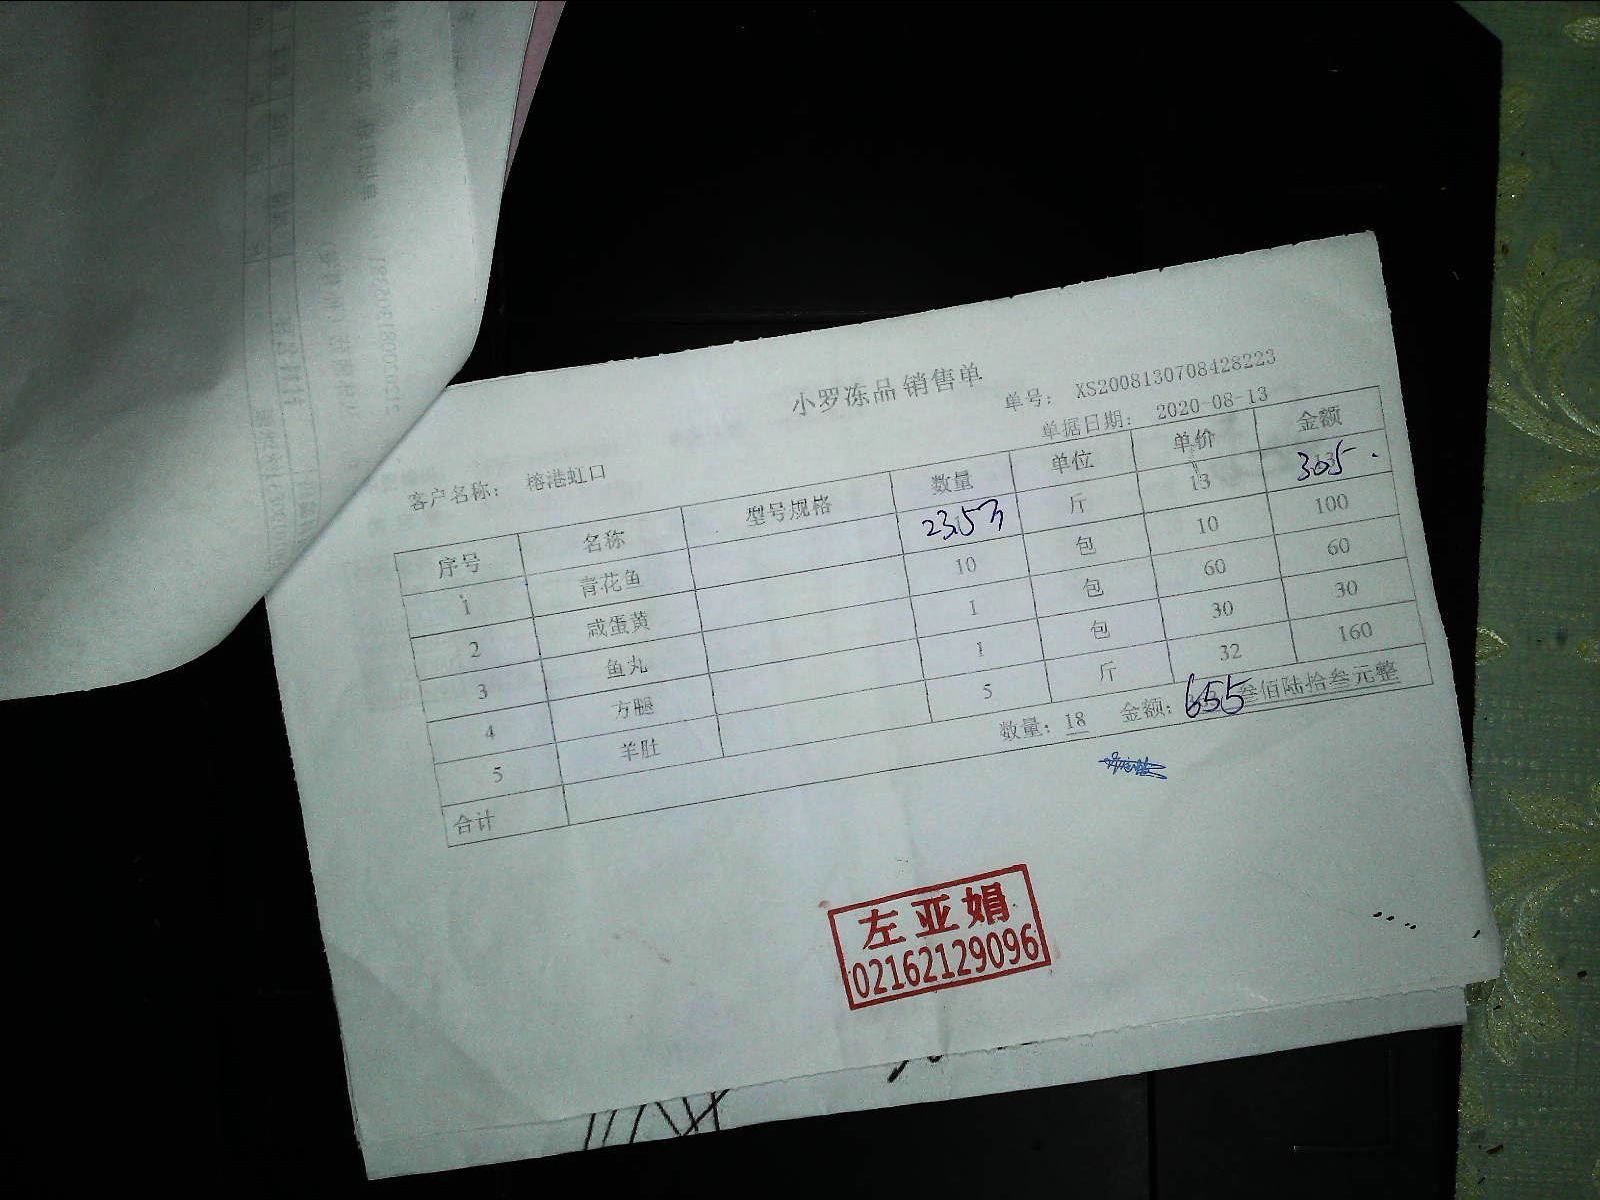 小罗冻品销售单
单号： XS2008130708428223
客户名称： 榕港虹口 单据日期： 2020-08-13
序号 名称 型号规格 数量 单位 单价 金额
1 青花鱼 23.5 斤 13 305.
2 咸蛋黄 10 包 10 100
3 鱼丸 1 包 60 60
4 方腿 1 包 30 30
5 羊肚 5 斤 32 160
合计 数量： 18 金额： 655 叁佰陆拾叁元整
左亚娟
02162129096